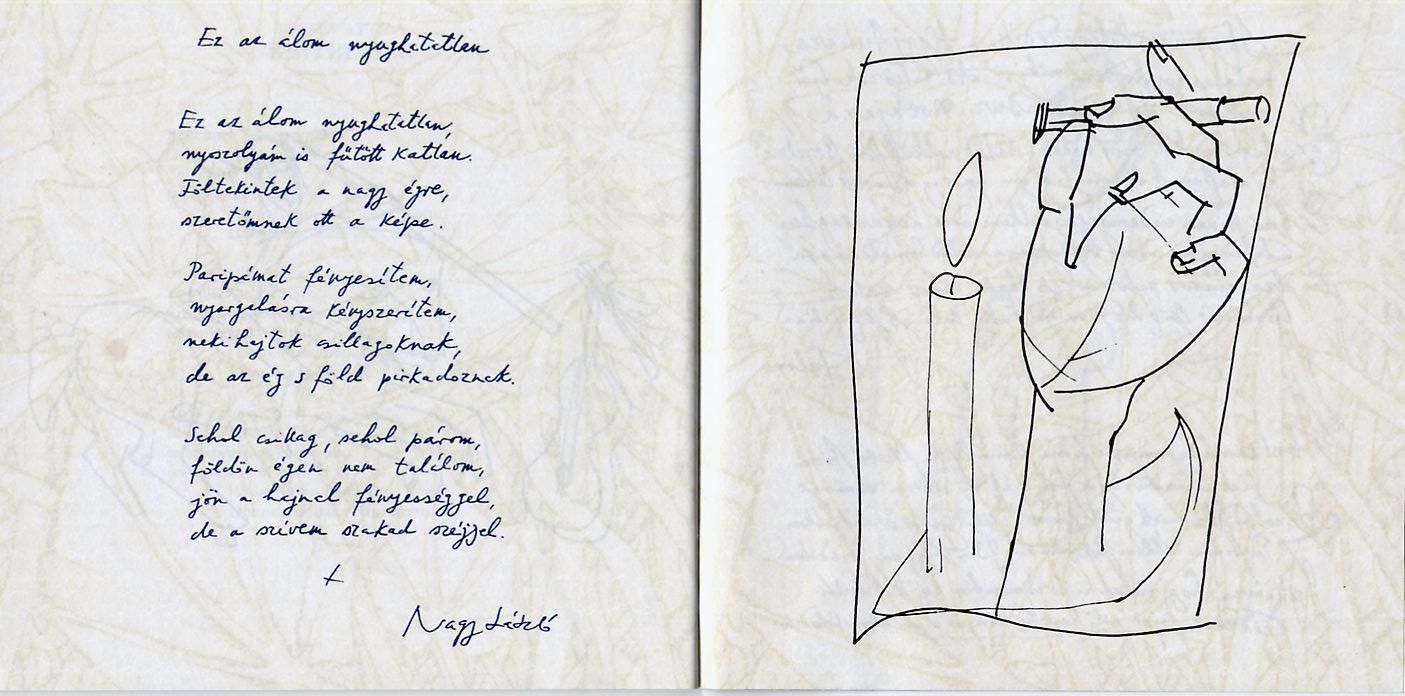 Ez az álom nyughatatlan
Ez az álom nyughatatlan,
nyoszolyám is fűtött katlan.
Föltekintek a nagy égre,
szeretőmnek ott a képe.
Paripámat fényesítem,
nyargalásra kényszerítem,
nekihajtok csillagoknak,
de az ég s föld pirkadoznak.
Sehol csillag, sehol párom,
földön égen nem találom,
jön a hajnal fényességgel,
de a szívem szakad széjjel.
Nagy László